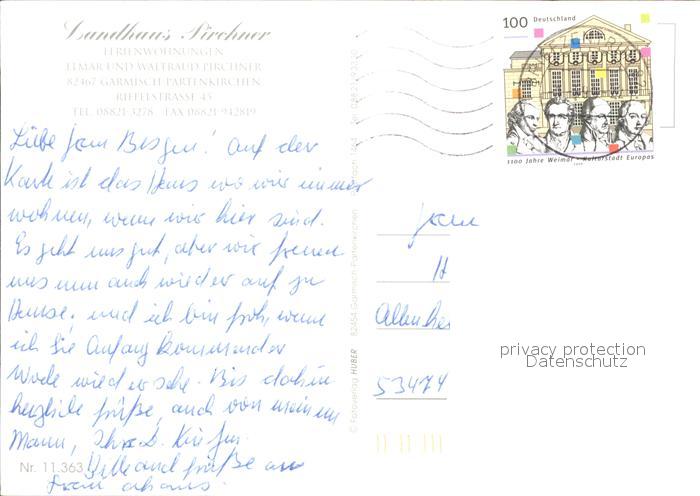 Landhaus Pirchner
FERIENWOHNUNGEN
ELMAR UND WALTRAUD PIRCHNER
82467 GARMISCH-PARTENKIRCHEN
RIFFELSTRASSE 45
TEL. 08821-3278 FAX 08821-942819
100 Deutschland
1100 Jahre Weimar · Kulturstadt Europas
Liebe Frau ! Auf der
Karte ist das Haus wo wir immer
wohnen, wenn wir hier sind.
Es geht uns gut, aber wir freuen
uns nun auch wieder auf zu
Hause, und ich bin froh, wenn
ich Sie Anfang kommender
Woche wiedersehe. Bis dahin
herzliche Grüße, auch von meinem
Mann, Ihre
Bitte auch Grüße an
Frau
Nr. 11.363
© Fotoverlag HUBER 82454 Garmisch-Partenkirchen
Frau
H
53474
privacy protection
Datenschutz